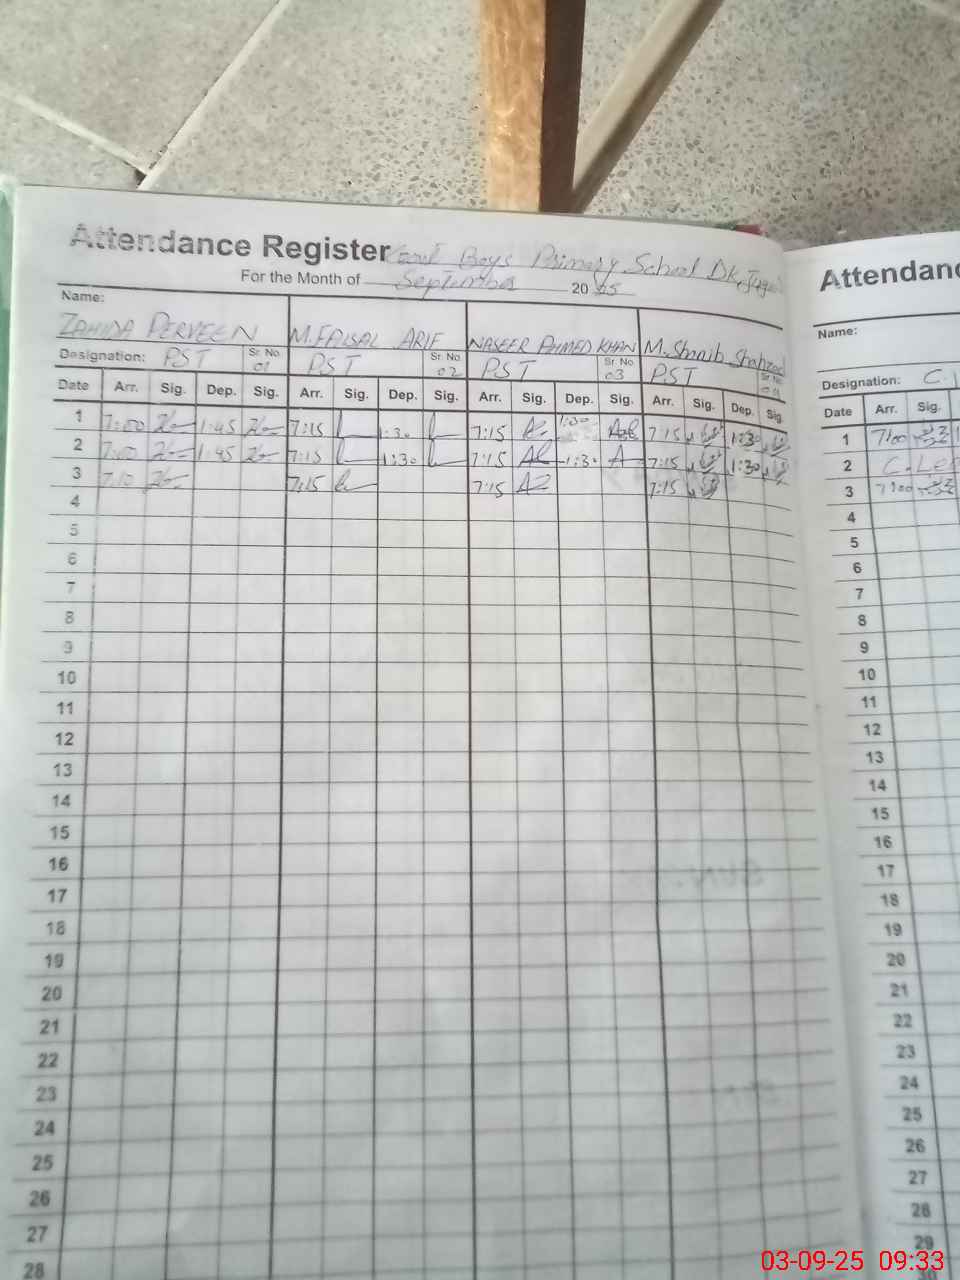 Attendance Register Govt Boys Primary School
For the Month of September 20 25
Name:
ZAHIDA PERVEEN M.FAISAL ARIF NASEER AHMED KHAN M. Shoaib Shahzad
Designation: PST Sr. No 01 PST Sr. No 02 PST Sr. No 03 PST Sr. No
Date Arr. Sig. Dep. Sig. Arr. Sig. Dep. Sig. Arr. Sig. Dep. Sig. Arr. Sig. Dep. Sig.
1 7:00 1:45 7:15 1:30 7:15 1:30 7:15 1:30
2 7:00 1:45 7:15 1:30 7:15 1:30 7:15 1:30
3 7:10 7:15 7:15 7:15
4
5
6
7
8
9
10
11
12
13
14
15
16
17
18
19
20
21
22
23
24
25
26
27
28
Attendanc
Name:
Designation: C.
Date Arr. Sig.
1 7:00
2 C.Lea
3 7:00
4
5
6
7
8
9
10
11
12
13
14
15
16
17
18
19
20
21
22
23
24
25
26
27
28
29
03-09-25 09:33